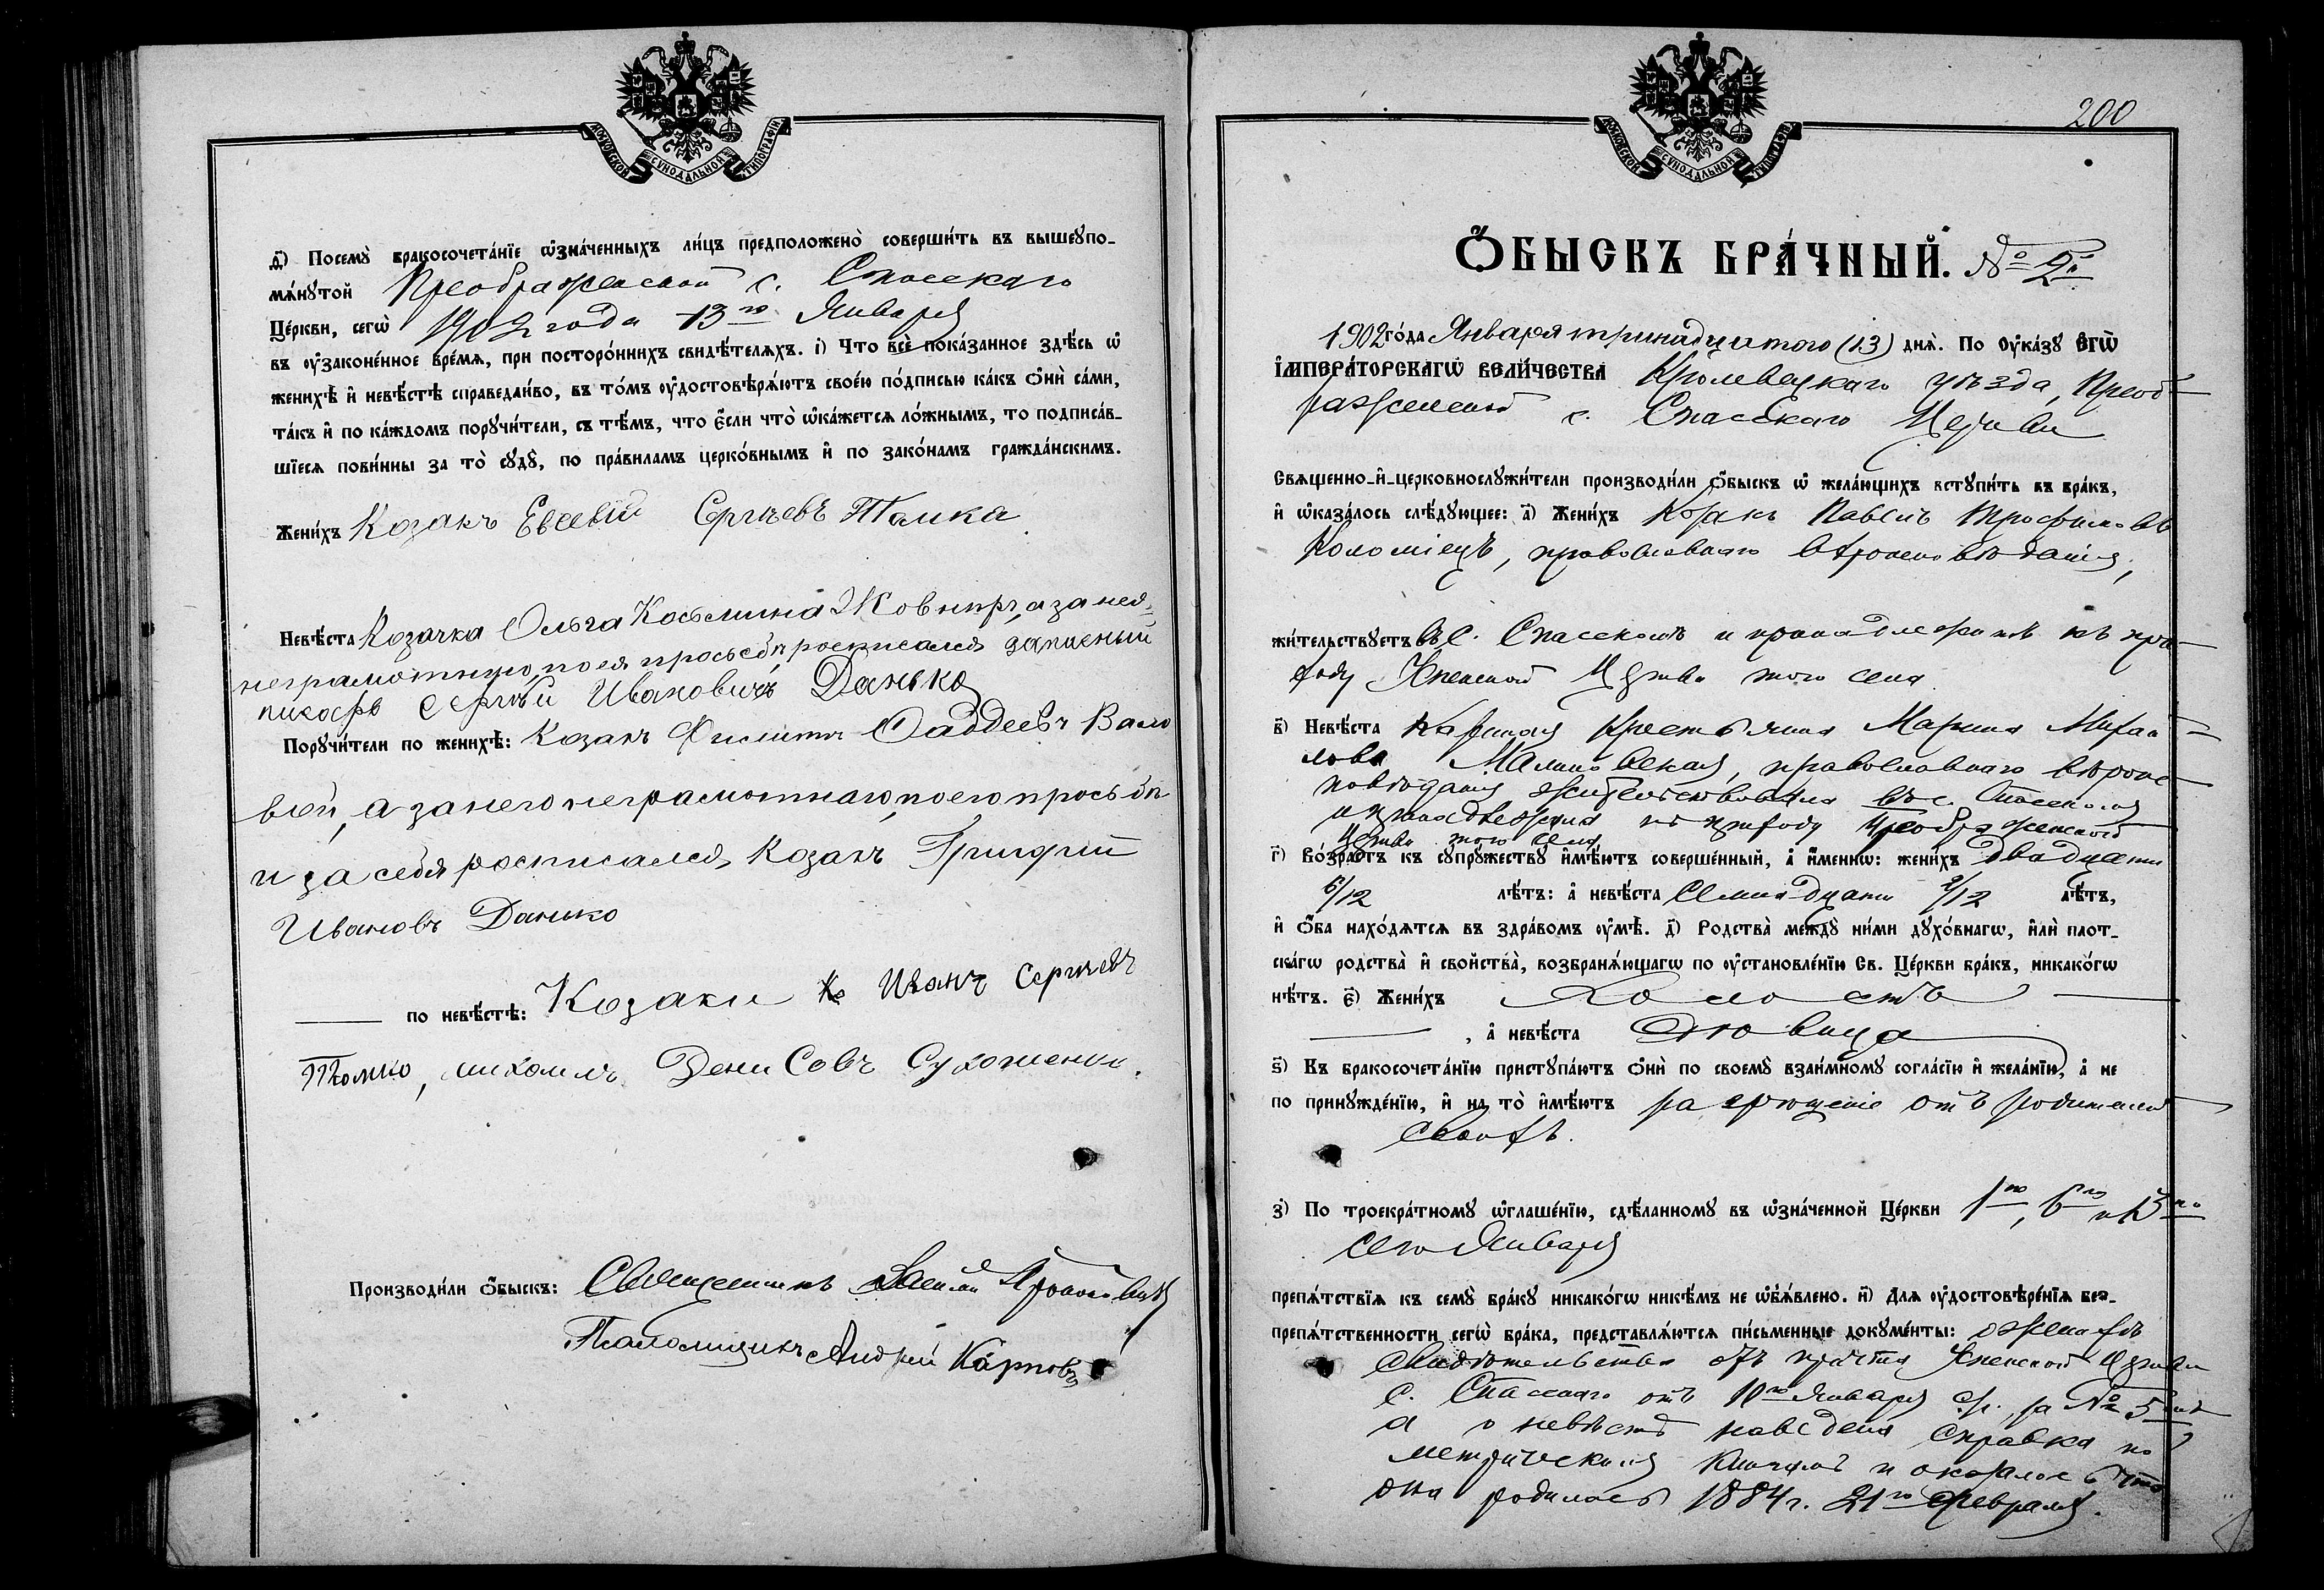 МОСКОВСКОЙ СѴНОДАЛЬНОЙ ТИПОГРАФІИ
д҃і) Посемꙋ̀ бракосочета́нїе ѡ҆зна́ченныхъ ли́цъ предположено̀ соверши́ть въ вышеꙋпо-
мѧ́нꙋтой Преображенской с. Спасскаго
Це́ркви, сегѡ̀ 1902 года 13го Января
въ ᲂу҆зако́ненное вре́мѧ, при посторо́ннихъ свидѣ́телѧхъ. і) Что̀ всѐ пока́занное здѣ́сь ѡ҆
женихѣ̀ и҆ невѣ́стѣ справедли́во, въ то́мъ ᲂу҆достовѣрѧ́ютъ свое́ю по́дписью ка́къ ѻ҆нѝ са́ми,
та́къ и҆ по ка́ждомъ порꙋчи́тели, съ тѣ́мъ, что є҆́сли что̀ ѡ҆ка́жетсѧ ло́жнымъ, то подписа́в-
шїесѧ пови́нны за то̀ сꙋдꙋ̀, по пра́виламъ церко́внымъ и҆ по зако́намъ гражда́нскимъ.
Жени́хъ Козакъ Евсевій Сергѣевъ Тамка
Невѣ́ста Козачка Ольга Косьмина Жовниръ, а за нея,
неграмотную, по ея просьбѣ, росписался запасный
писарь Сергѣй Ивановичъ Данько
Порꙋчи́тели по женихѣ̀: Козакъ Филиппъ Фаддеевъ Вало
вой, а за него неграмотнаго, по его просьбѣ
и за себя росписался Козакъ Григорій
Ивановъ Данько
по невѣ́стѣ: Козаки Иванъ Сергѣевъ
Томко, михаилъ Денисовъ
Производи́ли ѻ҆́быскъ: Священникъ Василій
Псаломщикъ Андрей Карповъ
МОСКОВСКОЙ СѴНОДАЛЬНОЙ ТИПОГРАФІИ
200
Ѻ҆́БЫСКЪ БРА́ЧНЫЙ. № 2й
1902 го́да Января тринадцатого (13) днѧ̀. По ᲂу҆ка́зꙋ Є҆гѡ̀
І҆мпера́торскагѡ вели́чества Кролевецкаго уѣзда, Преоб-
раженской с. Спасскаго Церкви
Свѧщенно-и҆-церковнослꙋжи́тели производи́ли ѻ҆́быскъ ѡ҆ жела́ющихъ встꙋпи́ть въ бра́къ,
и҆ ѡ҆каза́лось слѣ́дꙋющее: а҃) Жени́хъ Козакъ Павелъ Трофимовъ
Коломіецъ, православнаго вѣроисповѣданія,
жи́тельствꙋетъ въ с. Спасскомъ и принадлежитъ къ при-
ходу Успенской Церкви того села
в҃) Невѣ́ста Крестьянка Марина Михаи-
лова Малиновская, православнаго вѣроис-
повѣданія жительствовала въ с. Спасскомъ
и принадлежала къ приходу Преображенской
Церкви того села
г҃) Во́зрастъ къ сꙋпрꙋ́жествꙋ и҆мѣ́ютъ соверше́нный, а҆ и҆́меннѡ: жени́хъ двадцати
6/12 лѣ́тъ: а҆ невѣ́ста Семнадцати /12 лѣ́тъ,
и҆ ѻ҆́ба нахо́дѧтсѧ въ здра́вомъ ᲂу҆мѣ̀. д҃) Родства̀ междꙋ̀ ни́ми дꙋхо́внагѡ, и҆лѝ плот-
ска́гѡ родства̀ и҆ сво́йства̀, возбранѧ́ющагѡ по ᲂу҆становле́нїю Св. Це́ркви бра́къ, никако́гѡ
нѣ́тъ. є҃) Жени́хъ Холостъ
, а҆ невѣ́ста Дѣвица
ѕ҃) Къ бракосочета́нїю пристꙋпа́ютъ ѻ҆нѝ по своемꙋ̀ взаи́мномꙋ согла́сїю и҆ жела́нїю, а҆ не
по принꙋжде́нїю, и҆ на то̀ и҆мѣ́ютъ разрѣшеніе отъ родителей
своихъ.
з҃) По троекра́тномꙋ ѡ҆глаше́нїю, сдѣ́ланномꙋ въ ѡ҆зна́ченной Це́ркви 1го, 6го и 13го
сего Января
препѧ́тствїѧ къ семꙋ̀ бра́кꙋ никако́гѡ никѣ́мъ не ѡ҆б̾ѧ́влено. и҃) Длѧ ᲂу҆достовѣре́нїѧ без-
препѧ́тственности сегѡ̀ бра́ка, представлѧ́ютсѧ пи́сьменные докꙋме́нты: о женихѣ
свидѣтельство отъ причта Успенской Церкви
с. Спасскаго отъ 10го Января с/г. за № 5
а о невѣстѣ наведена справка по
метрическимъ книгамъ и оказалось что
она родилась 1884 г. 21го Февраля.